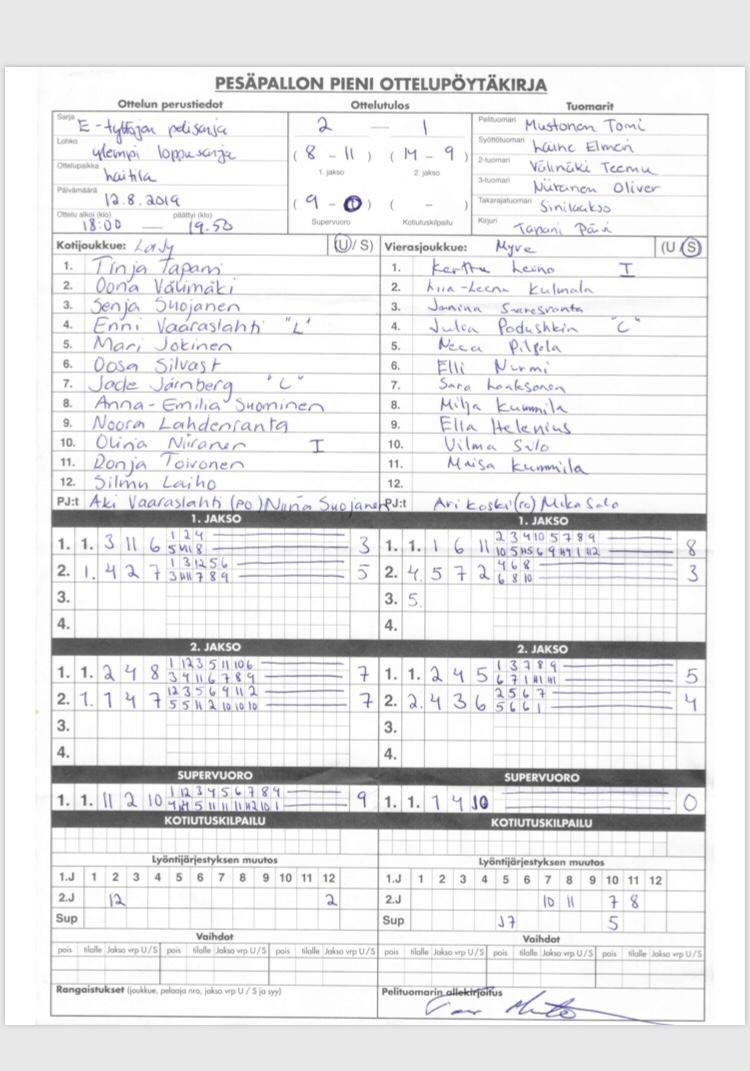 PESÄPALLON PIENI OTTELUPÖYTÄKIRJA
Ottelun perustiedot Ottelutulos Tuomarit
Sarja E-tyttöjen pelisarja
Lohko ylempi loppusarja
Ottelupaikka haitila
Päivämäärä 12.8.2019
Ottelu alkoi (klo) päättyi (klo)
18:00 — 19.50
2 — 1
(8 - 11) (14 - 9)
1. jakso 2. jakso
(9 - 0) ( - )
Supervuoro Kotiutuskilpailu
Pelituomari Mustonen Tomi
Syöttötuomari Laine Elmeri
2-tuomari Välimäki Teemu
3-tuomari Niiranen Oliver
Takarajatuomari Sinilaakso
Kirjuri Tapani Päivi
Kotijoukkue: Lady (U/ S)
1. Tinja Tapani
2. Oona Välimäki
3. Senja Suojanen
4. Enni Vaaraslahti "L"
5. Mari Jokinen
6. Oosa Silvast
7. Jade Järnberg "C"
8. Anna-Emilia Suominen
9. Noora Lahdenranta
10. Olivia Niiranen I
11. Ronja Toivonen
12. Silmu Laiho
PJ:t Aki Vaaraslahti (PO) Niina Suojanen
Vierasjoukkue: Myve (U / S)
1. Kerttu Leino I
2. Liia-Leena Kulmala
3. Janina Saaresranta
4. Julia Podushkin "C"
5. Neea Pilpola
6. Elli Nurmi
7. Sara Laaksonen
8. Milja Kummila
9. Ella Helenius
10. Vilma Salo
11. Maisa Kummila
12.
PJ:t Ari Koski (PO) Mika Salo
1. JAKSO 1. JAKSO
1. 1. 3 11 6 1 2 4 3
2. 1. 4 2 7 1 3 12 5 6 5
3.
4.
1. 1. 1 6 11 2 3 4 10 5 7 8 9 8
2. 4. 5 7 2 4 6 8 3
6 8 10
3. 5.
4.
2. JAKSO 2. JAKSO
1. 1. 2 4 8 1 12 3 5 11 10 6 7
3 4 11 6 7 8 9
2. 1. 1 4 7 12 3 5 6 9 11 2 7
5 5 11 2 10 10 10
3.
4.
1. 1. 2 4 5 1 3 7 8 9 5
2. 2. 4 3 6 2 5 6 7 4
5 6 6 1
3.
4.
SUPERVUORO SUPERVUORO
1. 1. 11 2 10 1 12 3 4 5 6 7 8 9 9
1. 1. 7 4 10 0
KOTIUTUSKILPAILU KOTIUTUSKILPAILU
Lyöntijärjestyksen muutos Lyöntijärjestyksen muutos
1.J 1 2 3 4 5 6 7 8 9 10 11 12
2.J 12 2
Sup
1.J 1 2 3 4 5 6 7 8 9 10 11 12
2.J 10 11 7 8
Sup 5
Vaihdot Vaihdot
pois tilalle Jakso vrp U/S pois tilalle Jakso vrp U/S pois tilalle Jakso vrp U/S
pois tilalle Jakso vrp U/S pois tilalle Jakso vrp U/S pois tilalle Jakso vrp U/S
Rangaistukset (joukkue, pelaaja nro, jakso vrp U / S ja syy)
Pelituomarin allekirjoitus